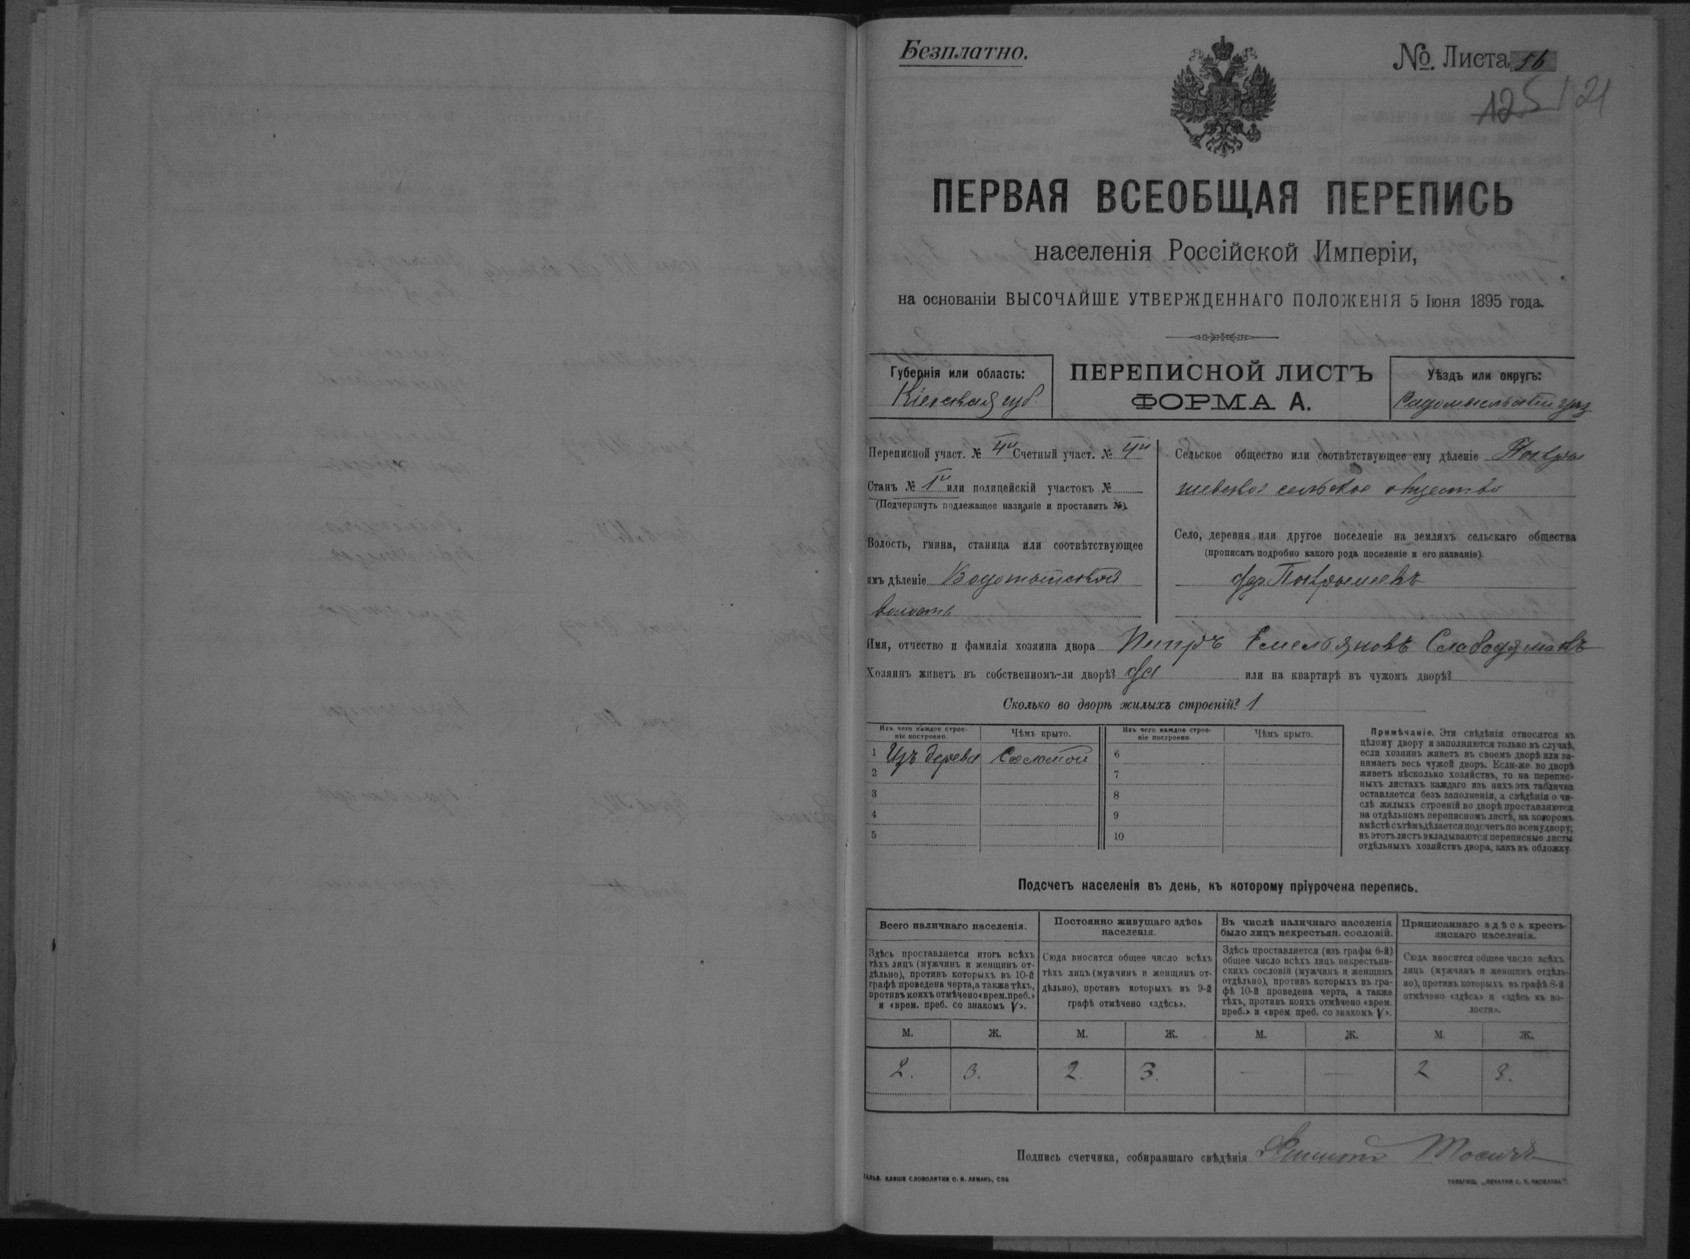 Безплатно.
№ Листа 56
125 121
ПЕРВАЯ ВСЕОБЩАЯ ПЕРЕПИСЬ
населенія Россійской Имперіи,
на основаніи ВЫСОЧАЙШЕ УТВЕРЖДЕННАГО ПОЛОЖЕНІЯ 5 Іюня 1895 года.
Губернія или область:
Кіевская губ.
ПЕРЕПИСНОЙ ЛИСТЪ
ФОРМА А.
Уѣздъ или округъ:
Радомысльскій
Переписной участ. № 4й Счетный участ. № 4й
Станъ № 1й или полицейскій участокъ №
(Подчеркнуть подлежащее названіе и проставить №).
Волость, гмина, станица или соотвѣтствующее
имъ дѣленіе Водотыйская
волость
Сельское общество или соотвѣтствующее ему дѣленіе
сельское общество
Село, деревня или другое поселеніе на земляхъ сельскаго общества
(прописать подробно какого рода поселеніе и его названіе)
дер.
Имя, отчество и фамилія хозяина двора Петръ Емельяновъ
Хозяинъ живетъ въ собственномъ-ли дворѣ? да или на квартирѣ въ чужомъ дворѣ?
Сколько во дворѣ жилыхъ строеній? 1
Изъ чего каждое строеніе построено.
Чѣмъ крыто.
Изъ чего каждое строеніе построено
Чѣмъ крыто.
1 Изъ дерева Соломой 6
2 7
3 8
4 9
5 10
Примѣчаніе. Эти свѣдѣнія относятся къ
цѣлому двору и заполняются только въ случаѣ,
если хозяинъ живетъ въ своемъ дворѣ или за-
нимаетъ весь чужой дворъ. Если-же во дворѣ
живетъ нѣсколько хозяйствъ, то на перепис-
ныхъ листахъ каждаго изъ нихъ эта табличка
оставляется безъ заполненія, а свѣдѣнія о чи-
слѣ жилыхъ строеній во дворѣ проставляются
на отдѣльномъ переписномъ листѣ, на которомъ
вмѣстѣ съ тѣмъ дѣлается подсчетъ по всему двору;
въ этотъ листъ вкладываются переписные листы
отдѣльныхъ хозяйствъ двора, какъ въ обложку
Подсчетъ населенія въ день, къ которому пріурочена перепись.
Всего наличнаго населенія.
Постоянно живущаго здѣсь
населенія.
Въ числѣ наличнаго населенія
было лицъ некрестьян. сословій.
Приписаннаго здѣсь кресть-
янскаго населенія.
Здѣсь проставляется итогъ всѣхъ
тѣхъ лицъ (мужчинъ и женщинъ от-
дѣльно), противъ которыхъ въ 10-й
графѣ проведена черта, а также тѣхъ,
противъ коихъ отмѣчено «врем. преб.»
и «врем. преб. со знакомъ V».
Сюда вносится общее число всѣхъ
тѣхъ лицъ (мужчинъ и женщинъ от-
дѣльно), противъ которыхъ въ 9-й
графѣ отмѣчено «здѣсь».
Здѣсь проставляется (изъ графы 6-й)
общее число всѣхъ лицъ некрестьян-
скихъ сословій (мужчинъ и женщинъ
отдѣльно), противъ которыхъ въ гра-
фѣ 10-й проведена черта, а также
тѣхъ, противъ коихъ отмѣчено «врем.
преб.» и «врем. преб. со знакомъ V».
Сюда вносится общее число всѣхъ
лицъ (мужчинъ и женщинъ отдѣль-
но), противъ которыхъ въ графѣ 8-й
отмѣчено «здѣсь» и «здѣсь въ во-
лости».
М. Ж. М. Ж. М. Ж. М. Ж.
2. 3. 2. 3. — — 2 3.
Подпись счетчика, собиравшаго свѣдѣнія